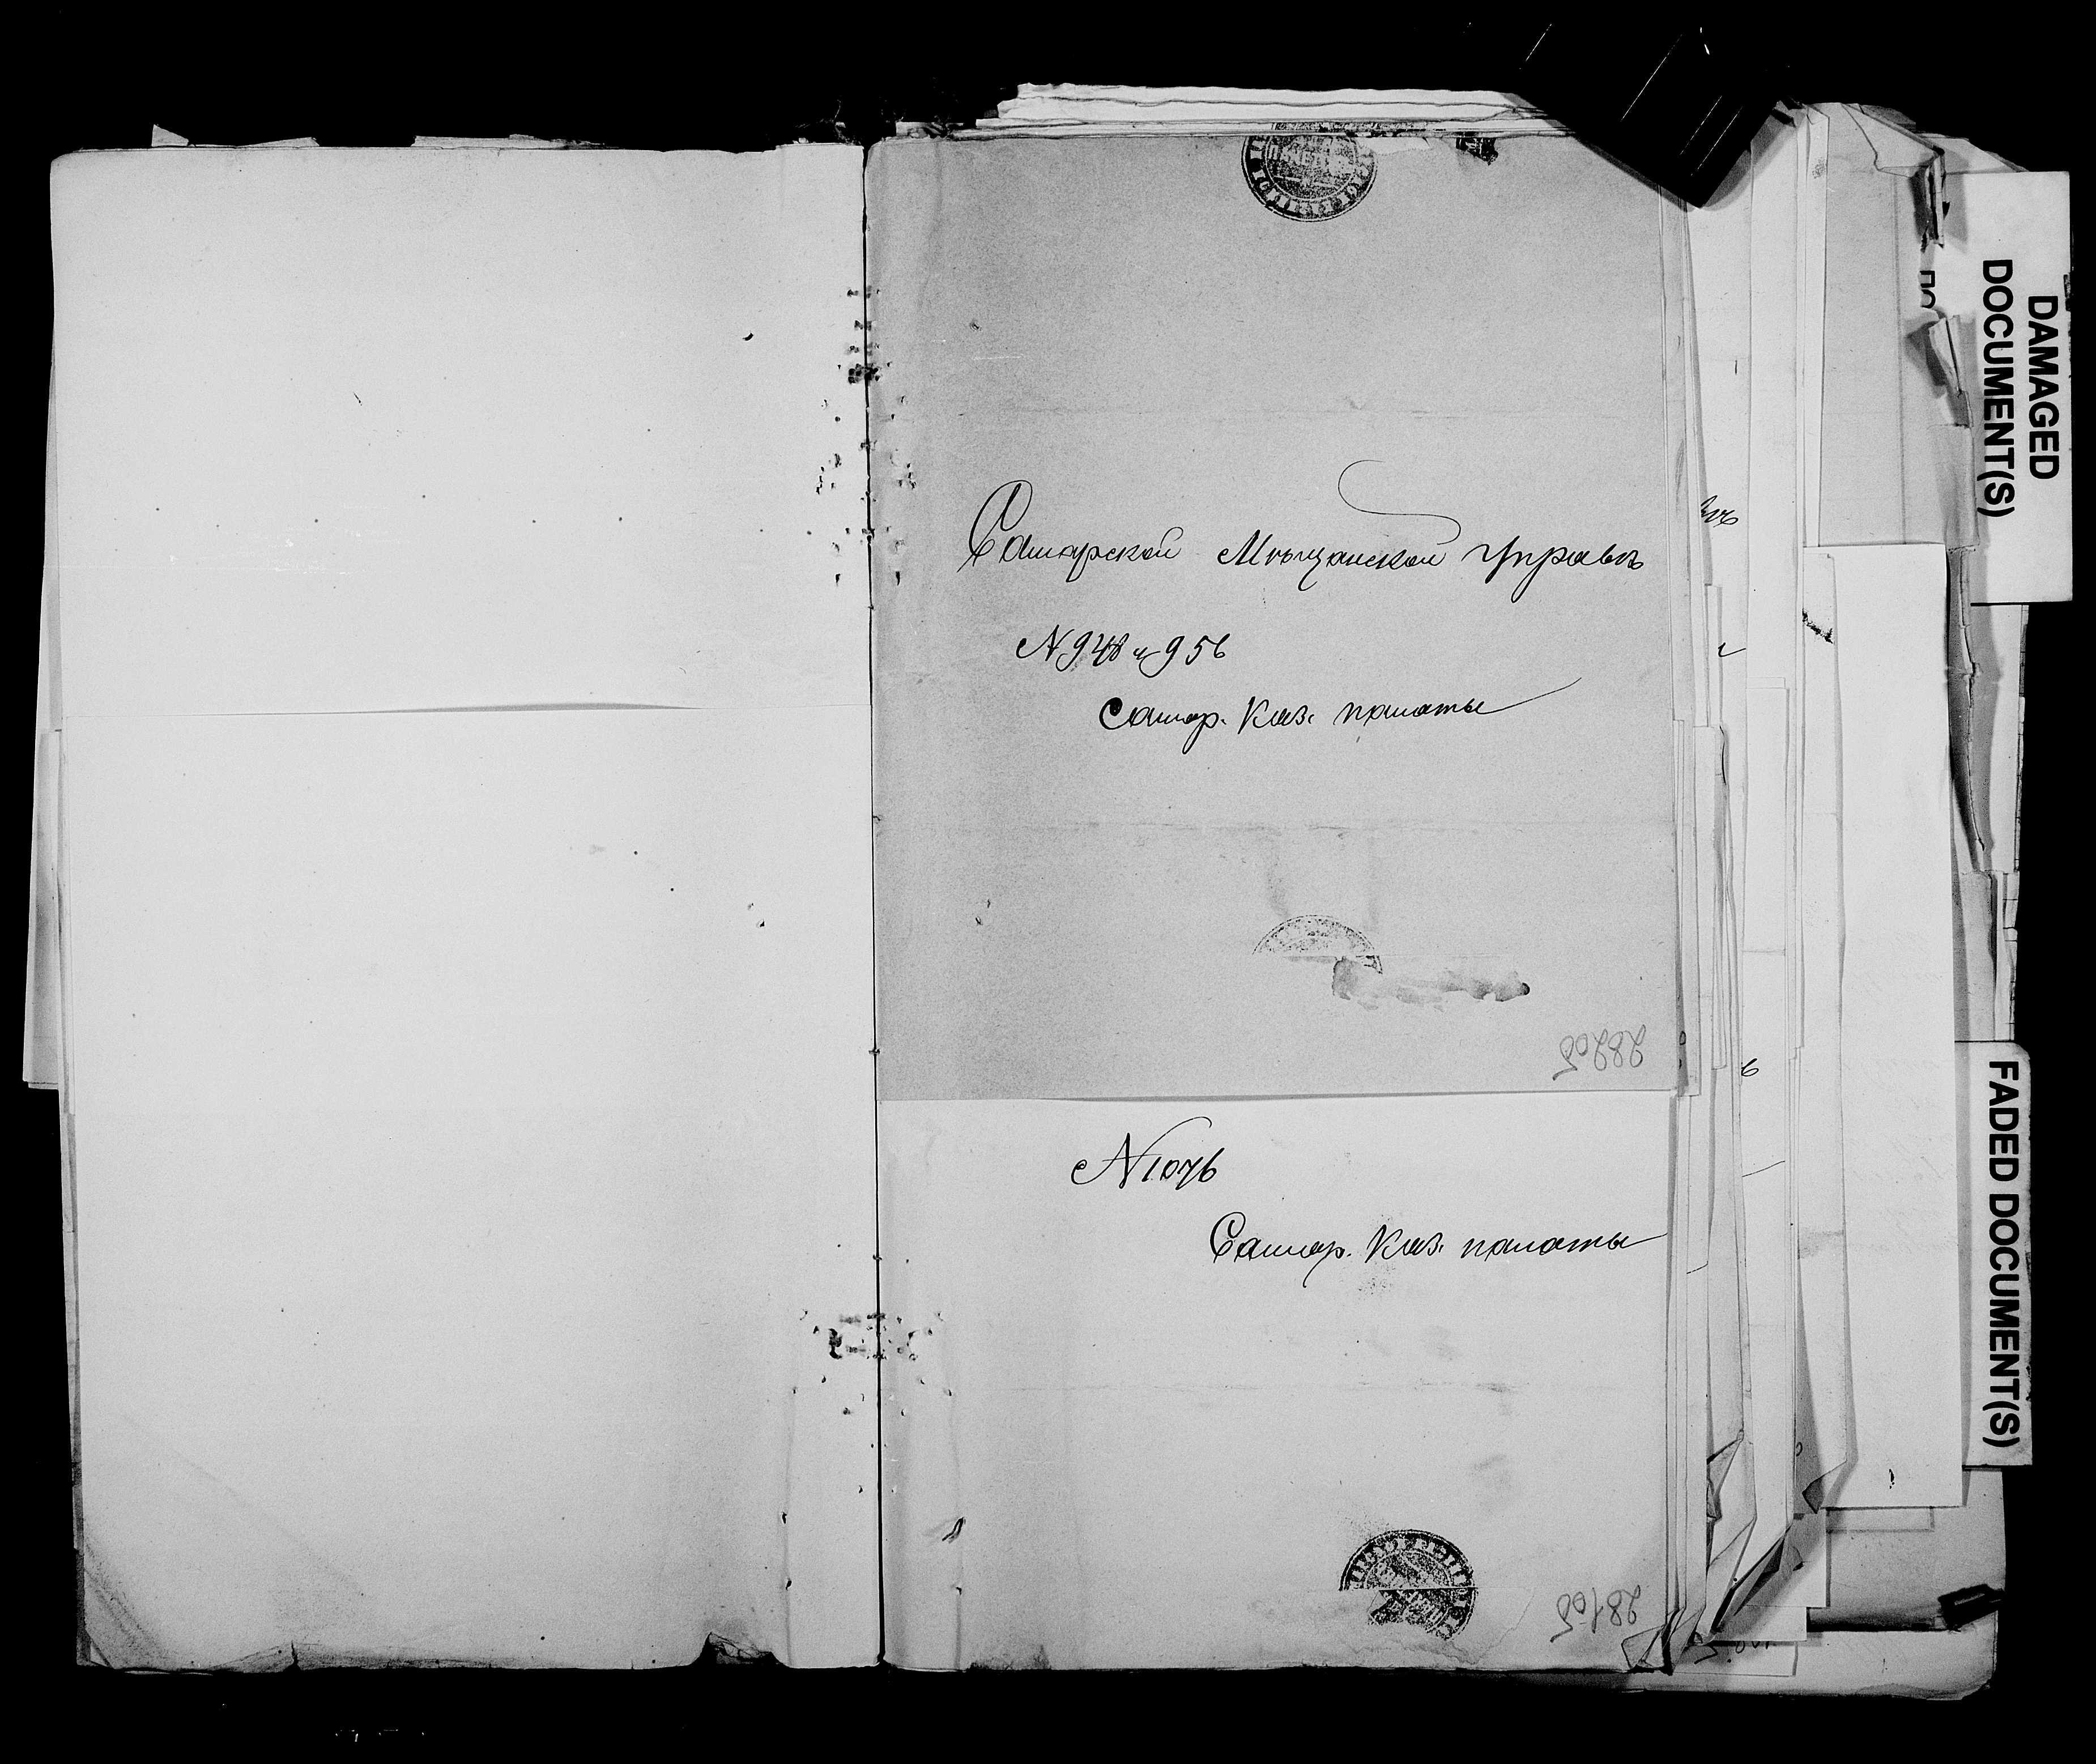 Самарской Мѣщанской Управѣ
N 948 и 956
Самар. Каз. палаты
282об
N 1076
Самар. Каз. палаты
281об
DAMAGED
DOCUMENT(S)
FADED DOCUMENT(S)